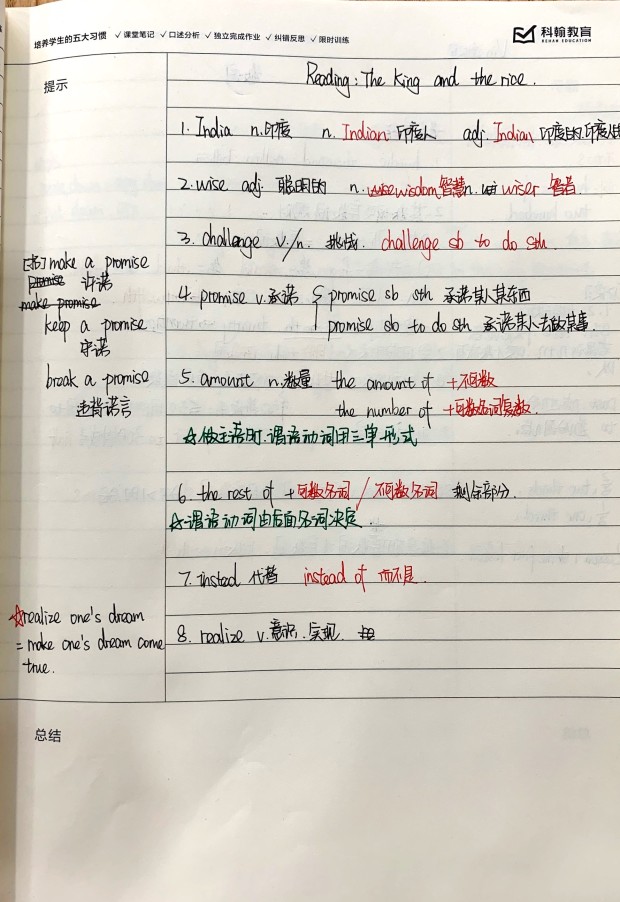 培养学生的五大习惯 ✓课堂笔记 ✓口述分析 ✓独立完成作业 ✓纠错反思 ✓限时训练
科翰教育
KEHAN EDUCATION
提示
Reading: The king and the rice.
1. India n.印度 n. Indian 印度人 adj. Indian 印度的,印度人的
2. wise adj. 聪明的 n. wisdom 智慧 n. wiser 智者.
3. challenge v./n. 挑战. challenge sb to do sth.
[拓] make a promise
许诺
make promise
keep a promise
守诺
break a promise
违背诺言
4. promise v.承诺 promise sb sth 承诺某人某东西
promise sb to do sth 承诺某人去做某事.
5. amount n.数量 the amount of +不可数
the number of +可数名词复数.
☆做主语时,谓语动词用三单形式
6. the rest of +可数名词/不可数名词 剩余部分.
☆谓语动词由后面名词决定.
7. insted 代替 instead of 而不是.
☆realize one's dream
= make one's dream come
true.
8. realize v.意识.实现.
总结